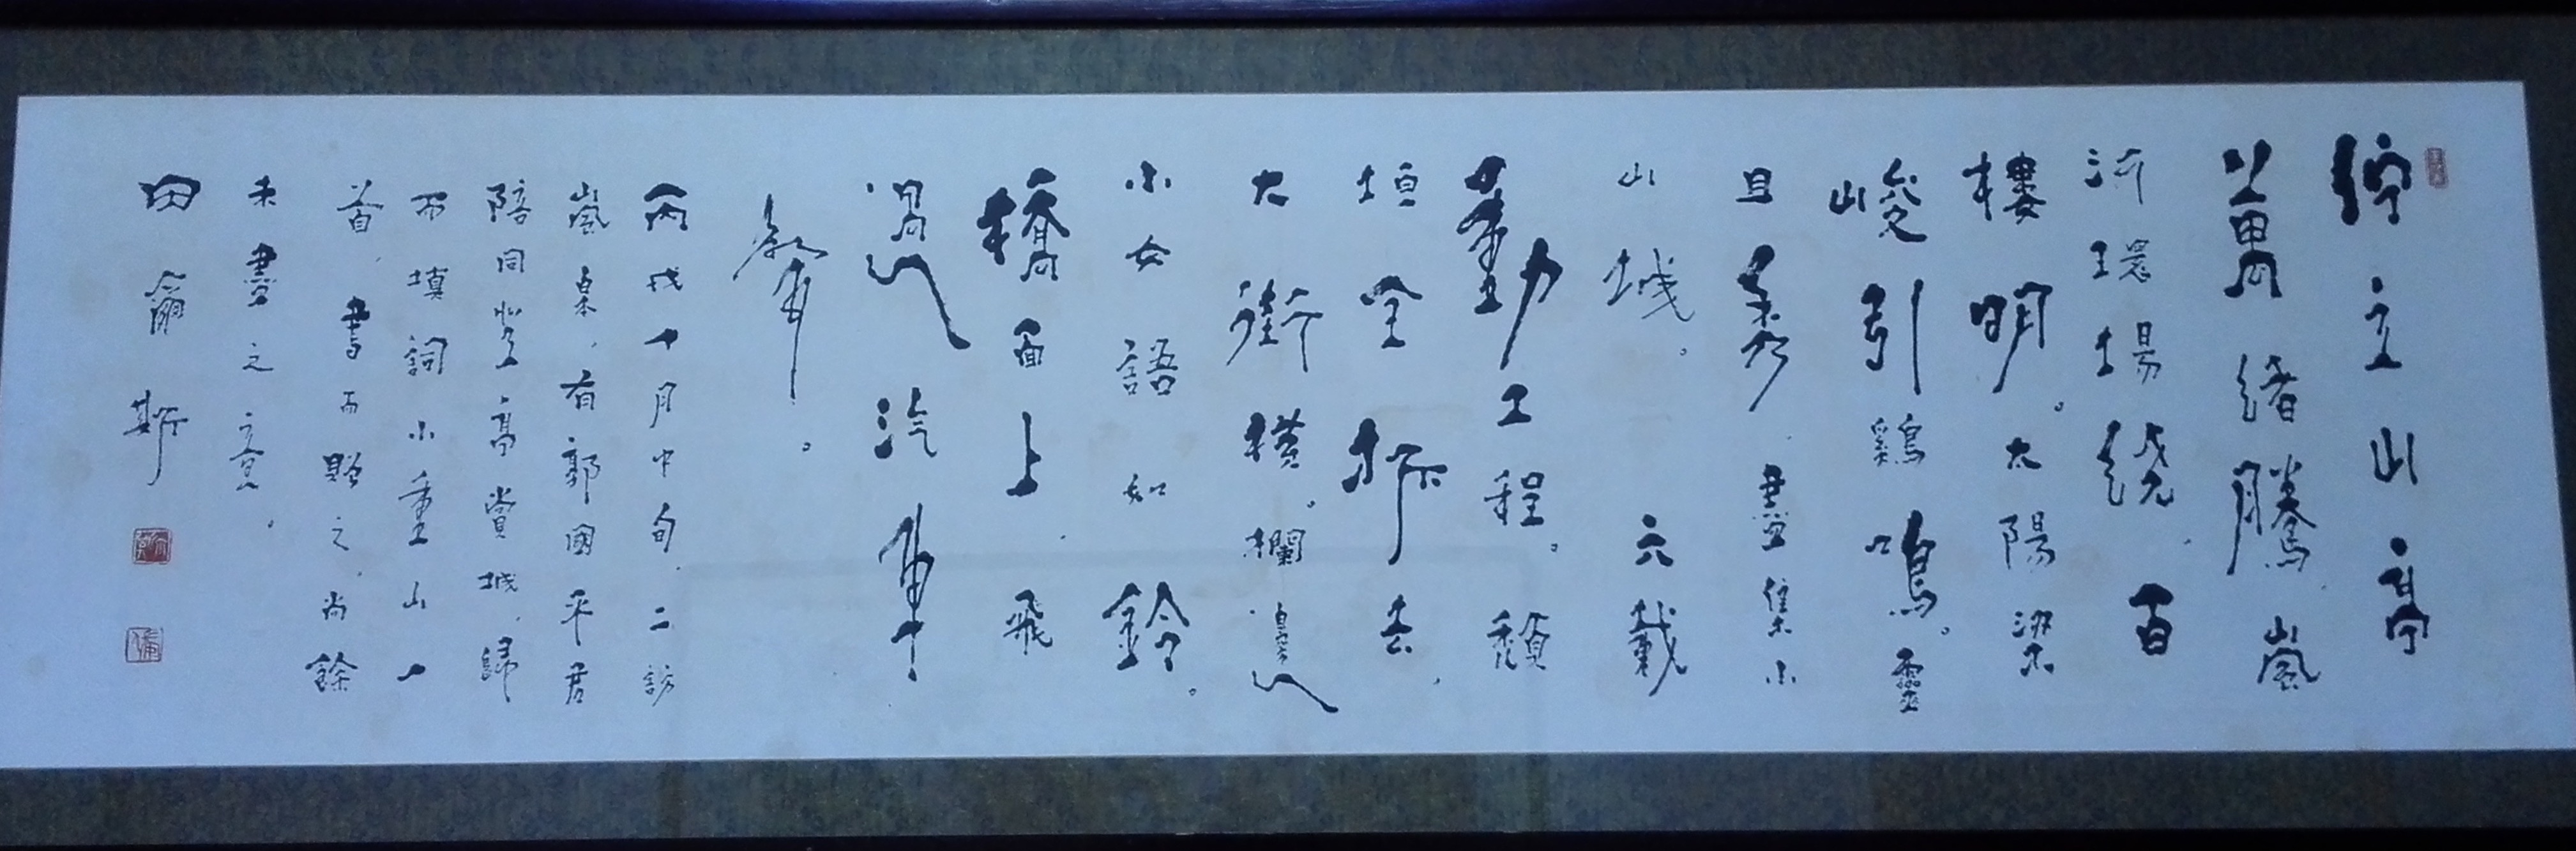 佇立山亭
萬緒騰，嵐
河環場繞，百
樓明。太陽梁
峻引鷄鳴。靈
且秀，盡集小
山城。六載
動工程。頹
垣全拆去，
大街橫。欄邊
小女語如鈴。
橋面上，飛
過汽車
聲。
丙戌十月中旬，二訪
嵐皋，有郭國平君
陪同登高賞城，歸
而填詞小重山一
首，書而贈之，尚餘
未盡之意。
田斯